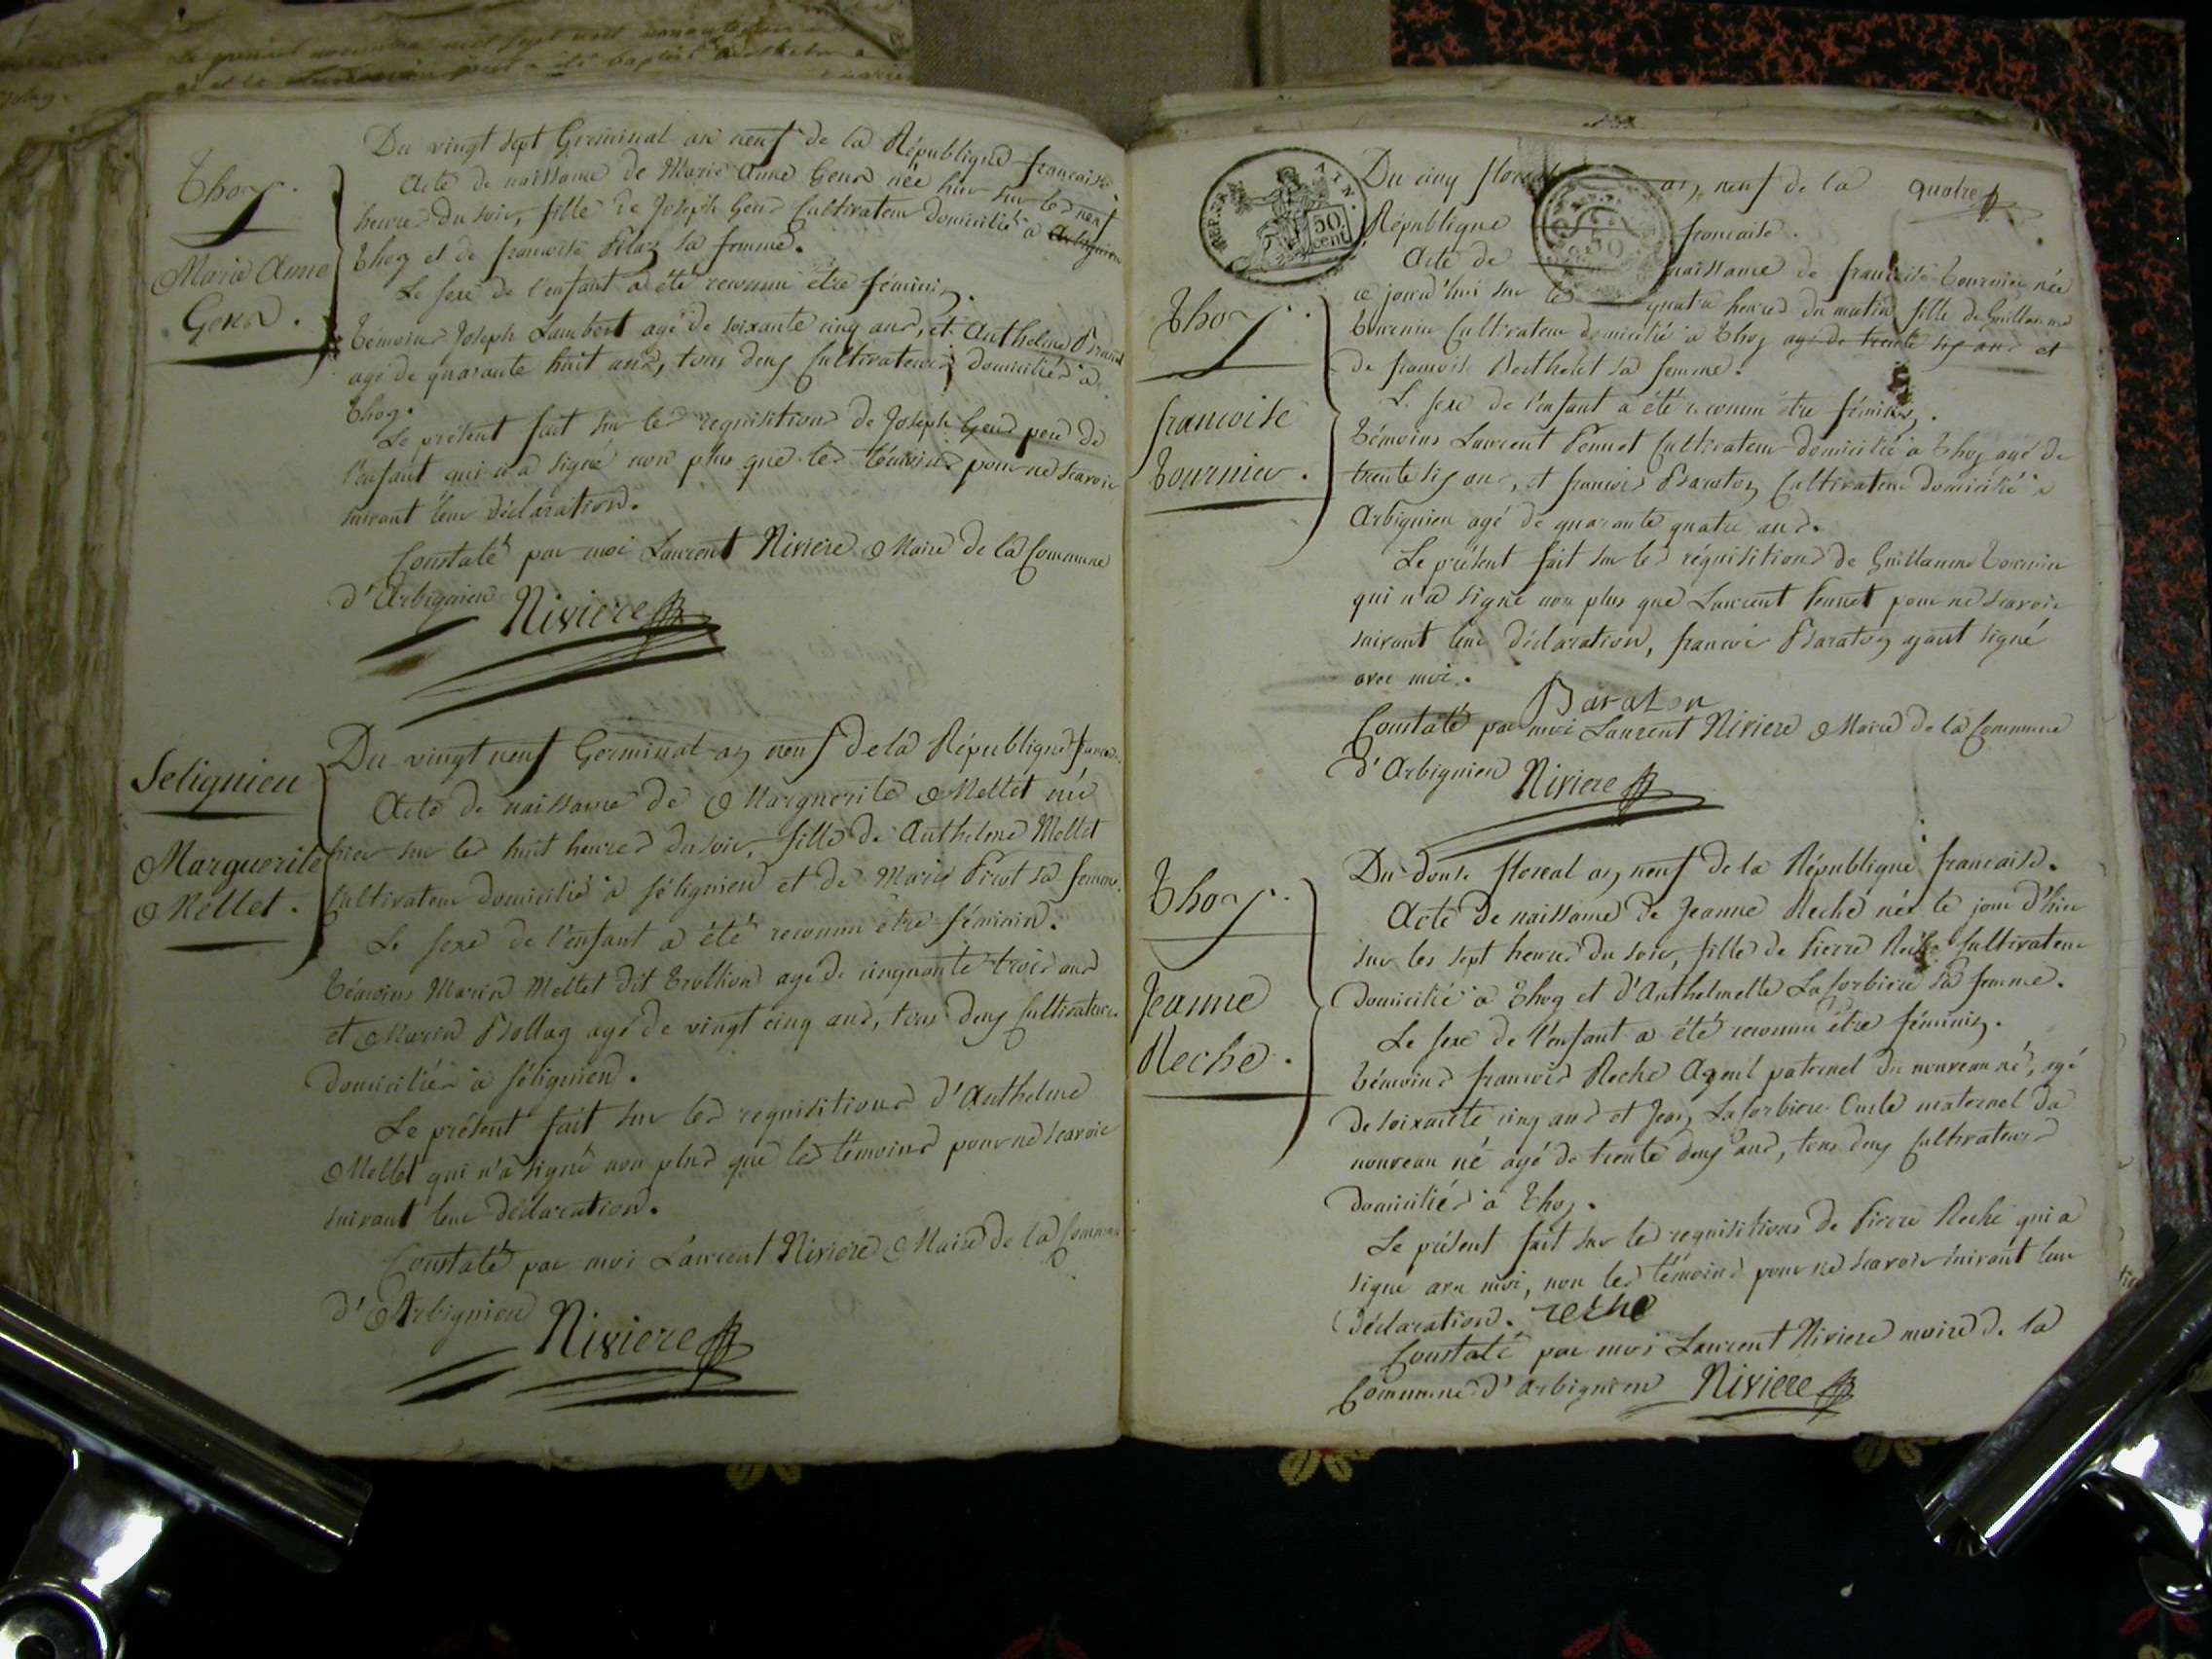 Thoy.
Marie Anne
Genod.
Du vingt sept Germinal an neuf de la République francaise.
Acte de naissance de Marie Anne Genod née hier sur les neuf
heures du soir, fille de Joseph Genod Cultivateur domicilié à Arbignieu
Thoy et de francoise Pilaz sa femme.
Le sexe de l'enfant a été reconnu être féminin.
témoins Joseph Lambert agé de soixante cinq ans, et Anthelme
agé de quarante huit ans, tous deux Cultivateurs domiciliés à
Thoy.
Le présent fait sur les requisitions de Joseph Genod pere de
l'enfant qui n'a signé non plus que les témoins pour ne scavoir
suivant leur déclaration.
Constaté par moi Laurent Riviere Maire de la Commune
d'Arbignieu Riviere
Selignieu
Marguerite
Mellet.
Du vingt neuf Germinal an neuf de la République
Acte de naissance de Marguerite Mellet née
hier sur les huit heures du soir, fille de Anthelme Mellet
Cultivateur domicilié à sélignieu et de Marie sa femme.
Le sexe de l'enfant a été reconnu être féminin.
témoins Marin Mellet dit Trollion agé de cinquante trois ans
et Marin Bollag agé de vingt cinq ans, tous deux Cultivateurs
domiciliés à sélignieu.
Le présent fait sur les requisitions d'Anthelme
Mellet qui n'a signé non plus que les témoins pour ne scavoir
suivant leur déclaration.
Constaté par moi Laurent Riviere Maire de la Commune
d'Arbignieu
Riviere
REP. FRA. AIN.
50
cent
quatre
Thoy.
francoise
Tournier.
Du cinq floreal an neuf de la
République francaise.
Acte de naissance de francoise Tournier née
ce jourd'hui sur les quatre heures du matin fille de Guillaume
Tournier Cultivateur domicilié à Thoy agé de trente six ans et
de francoise Berthelet sa femme.
Le sexe de l'enfant a été reconnu être féminin.
témoins Laurent Pennet Cultivateur domicilié à Thoy agé de
trente six ans, et francois Baraton Cultivateur domicilié à
Arbignieu agé de quarante quatre ans.
Le présent fait sur les réquisitions de Guillaume Tournier
qui n'a signé non plus que Laurent Pennet pour ne scavoir
suivant leur déclaration, francois Baraton ayant signé
avec moi.
Baraton
Constaté par moi Laurent Riviere Maire de la Commune
d'Arbignieu Riviere
Thoy.
Jeanne
Reche.
Du douze floreal an neuf de la République francaise.
Acte de naissance de Jeanne Reche née le jour d'hier
sur les sept heures du soir, fille de Pierre Reche Cultivateur
domicilié à Thoy et d'Anthelmette Laforbiere sa femme.
Le sexe de l'enfant a été reconnu être féminin.
témoins francois Reche Ayeul paternel du nouveau né, agé
de soixante cinq ans et Jean Laforbiere Oncle maternel du
nouveau né agé de trente deux ans, tous deux Cultivateurs
domiciliés à Thoy.
Le présent fait sur les requisitions de Pierre Reche qui a
signé avec moi, non les témoins pour ne scavoir suivant leur
déclaration. reche
Constaté par moi Laurent Riviere maire de la
Commune d'Arbignieu Riviere